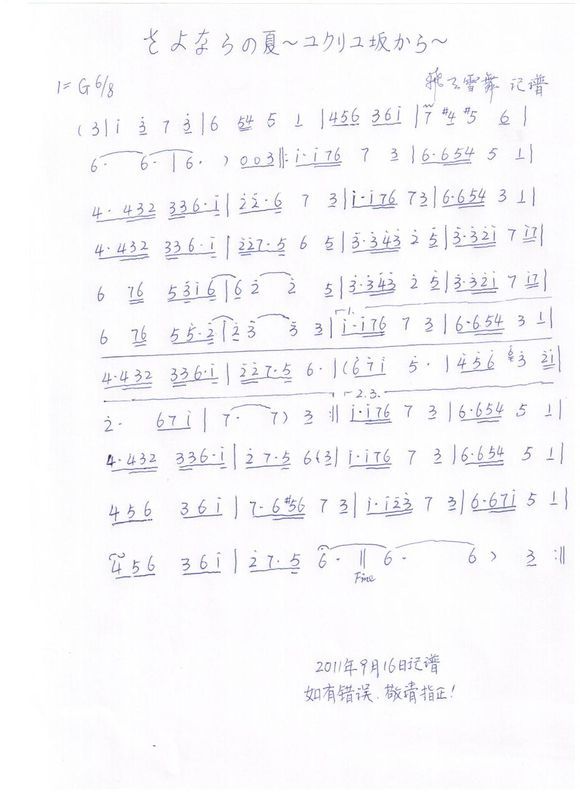 さよならの夏〜ユクリユ坂から〜
1=G 6/8
飛云雪舞 记谱
(3|i 3 7 3|6 54 5 1|456 36i|7 #4 #5 6|
6· 6·|6·) 003‖:i·i76 7 3|6·654 5 1|
4·432 336·i|22·6 7 3|i·i76 73|6·654 3 1|
4·432 336·i|227·5 6 5|3·343 2 5|3·32i 7 i7|
6 76 53i6|6 2 2 5|3·343 2 5|3·32i 7 i7|
6 76 55·2|2 3 3 3|1. i·i76 7 3|6·654 3 1|
4·432 336·i|227·5 6·|(67i 5·|456 3 2i|
2· 67i|7· 7) 3:‖2.3. i·i76 7 3|6·654 5 1|
4·432 336·i|27·5 6(3|i·i76 7 3|6·654 5 1|
456 36i|7·6#56 7 3|i·i23 7 3|6·67i 5 1|
456 36i|27·5 6·‖6· 6) 3:‖
Fine
2011年9月16日记谱
如有错误.敬请指正!